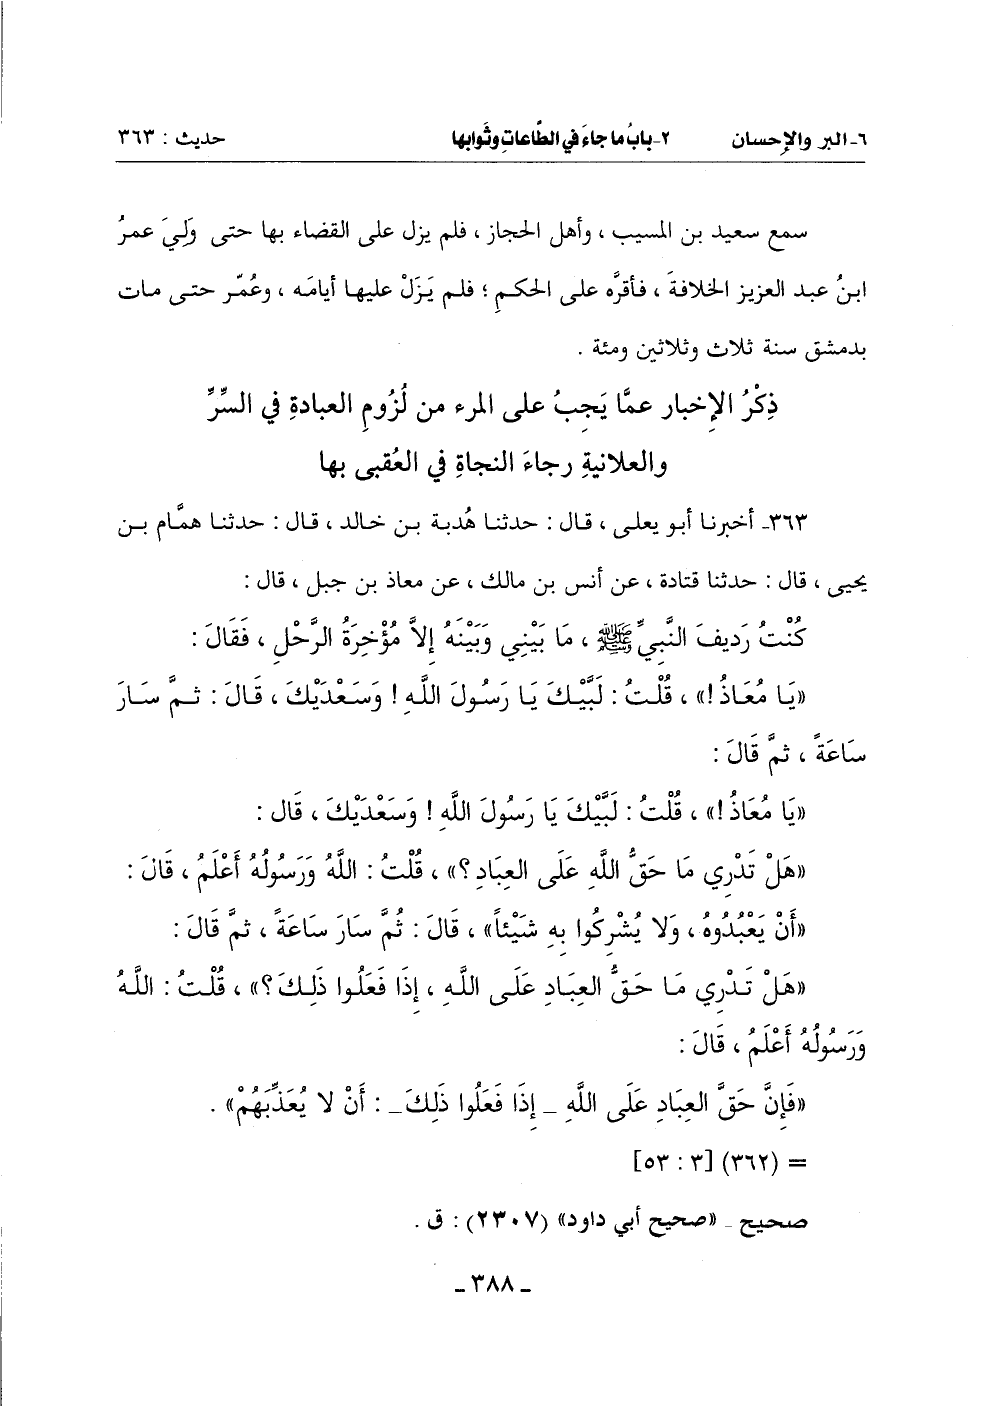 ٦- البر والإحسان ٢- بابُ ما جاءَ في الطَّاعاتِ وثَوابها حديث : ٣٦٣
سمع سعيد بن المسيب ، وأهل الحجاز ، فلم يزل على القضاء بها حتى وَلِيَ عمرُ
ابنُ عبد العزيز الخلافةَ ، فأقرَّه على الحكمِ ؛ فلم يَزَلْ عليها أيامَه ، وعُمّر حتى مات
بدمشق سنة ثلاث وثلاثين ومئة .
ذِكْرُ الإِخبار عمَّا يَجِبُ على المرء من لُزُومِ العبادةِ في السِّرِّ
والعلانيةِ رجاءَ النجاةِ في العُقبى بها
٣٦٣- أخبرنا أبو يعلى ، قال : حدثنا هُدبة بن خالد ، قال : حدثنا همَّام بن
يحيى ، قال : حدثنا قتادة ، عن أنس بن مالك ، عن معاذ بن جبل ، قال :
كُنْتُ رَدِيفَ النَّبِيِّ ﷺ ، مَا بَيْنِي وَبَيْنَهُ إلاَّ مُؤْخِرَةُ الرَّحْلِ ، فَقَالَ :
«يَا مُعَاذُ !» ، قُلْتُ : لَبَّيْكَ يَا رَسُولَ اللَّهِ ! وَسَعْدَيْكَ ، قَالَ : ثمَّ سَارَ
سَاعَةً ، ثمَّ قَالَ :
«يَا مُعَاذُ !» ، قُلْتُ : لَبَّيْكَ يَا رَسُولَ اللَّهِ ! وَسَعْدَيْكَ ، قَال :
«هَلْ تَدْرِي مَا حَقُّ اللَّهِ عَلَى العِبَادِ ؟» ، قُلْتُ : اللَّهُ وَرَسُولُهُ أَعْلَمُ ، قَالَ :
«أَنْ يَعْبُدُوهُ ، وَلا يُشْرِكُوا بِهِ شَيْئاً» ، قَالَ : ثُمَّ سَارَ سَاعَةً ، ثمَّ قَالَ :
«هَلْ تَدْرِي مَا حَقُّ العِبَادِ عَلَى اللَّهِ ، إِذَا فَعَلُوا ذَلِكَ ؟» ، قُلْتُ : اللَّهُ
وَرَسُولُهُ أَعْلَمُ ، قَالَ :
«فَإِنَّ حَقَّ العِبَادِ عَلَى اللَّهِ _ إِذَا فَعَلُوا ذَلِكَ _ : أَنْ لا يُعَذِّبَهُمْ» .
= (٣٦٢) [٣ : ٥٣]
صحيح _ «صحيح أبي داود» (٢٣٠٧) : ق .
ـ ٣٨٨ ـ